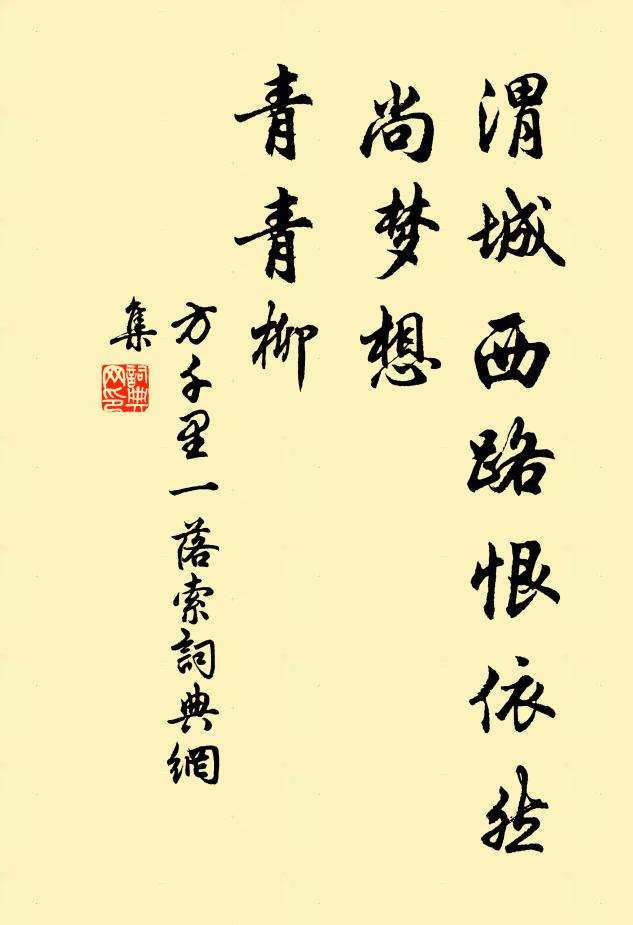 渭城西路恨依然
尚梦想
青青柳
方千里一落索詞典網
集
詞典网印